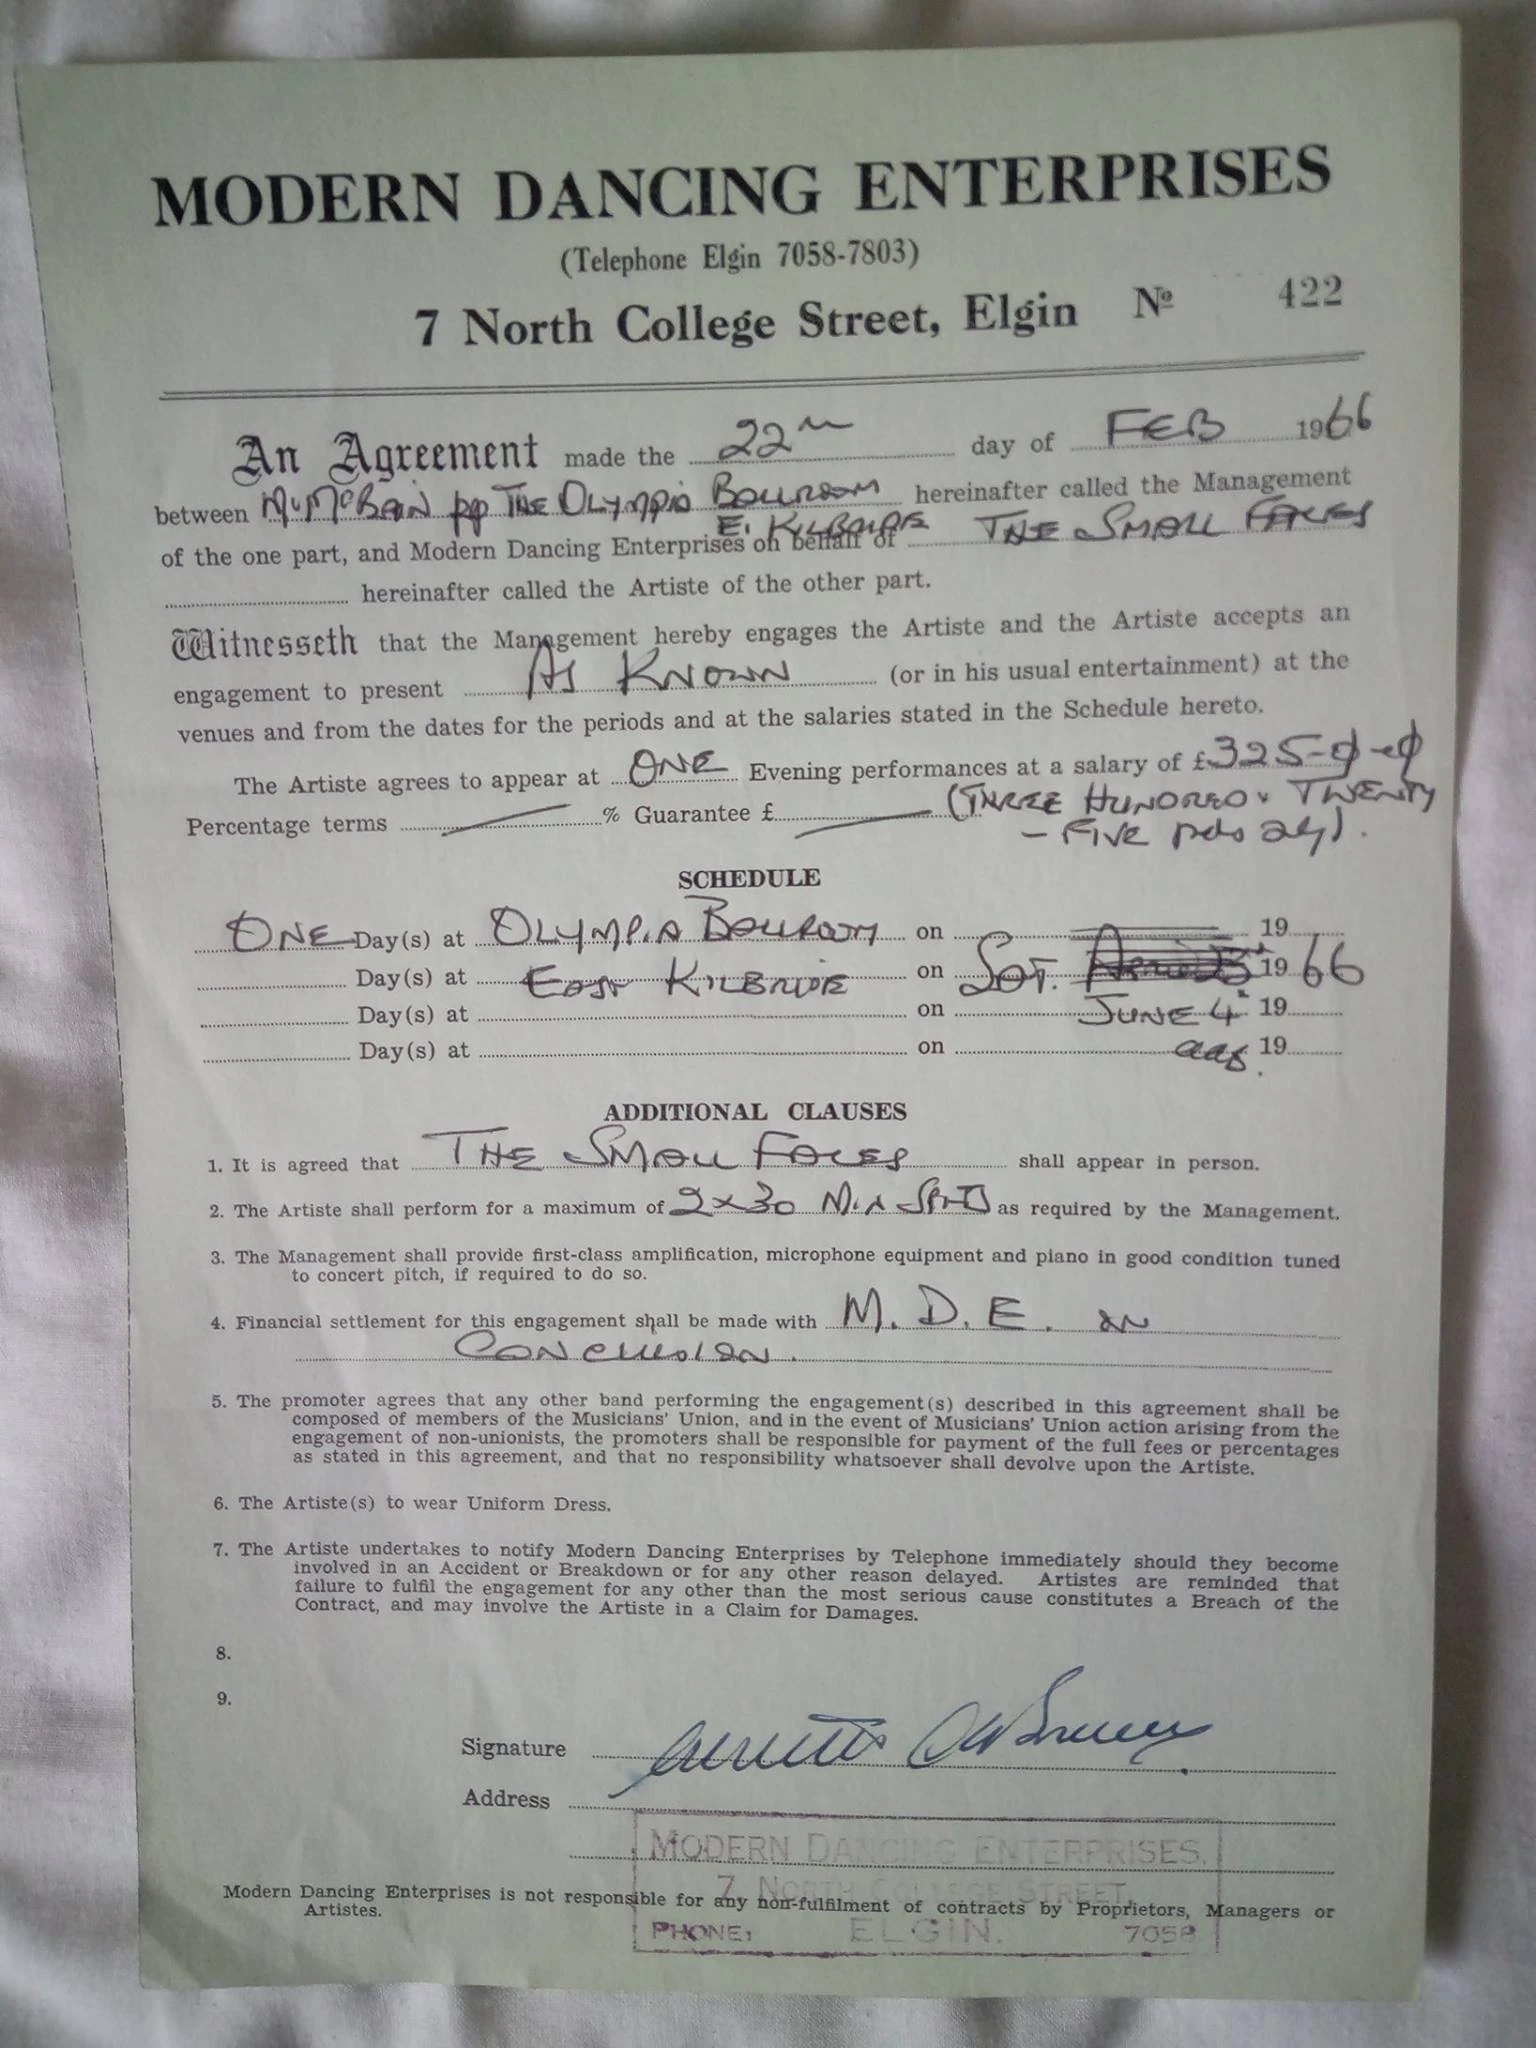 MODERN DANCING ENTERPRISES
(Telephone Elgin 7058-7803)
7 North College Street, Elgin Nº 422
An Agreement made the 22 day of FEB 1966
between McBAIN pp THE OLYMPIA BALLROOM hereinafter called the Management
E. KILBRIDE
of the one part, and Modern Dancing Enterprises on behalf of THE SMALL FACES
hereinafter called the Artiste of the other part.
Witnesseth that the Management hereby engages the Artiste and the Artiste accepts an
engagement to present AS KNOWN (or in his usual entertainment) at the
venues and from the dates for the periods and at the salaries stated in the Schedule hereto.
The Artiste agrees to appear at ONE Evening performances at a salary of £325-0-0
Percentage terms % Guarantee £ (THREE HUNDRED & TWENTY
- FIVE pds only).
SCHEDULE
ONE Day(s) at OLYMPIA BALLROOM on 19
Day(s) at EAST KILBRIDE on SAT. 1966
Day(s) at on JUNE 4 19
Day(s) at on 19
ADDITIONAL CLAUSES
1. It is agreed that THE SMALL FACES shall appear in person.
2. The Artiste shall perform for a maximum of 2 x 30 MIN SPOTS as required by the Management.
3. The Management shall provide first-class amplification, microphone equipment and piano in good condition tuned
to concert pitch, if required to do so.
4. Financial settlement for this engagement shall be made with M. D. E. ON
CONCLUSION.
5. The promoter agrees that any other band performing the engagement(s) described in this agreement shall be
composed of members of the Musicians' Union, and in the event of Musicians' Union action arising from the
engagement of non-unionists, the promoters shall be responsible for payment of the full fees or percentages
as stated in this agreement, and that no responsibility whatsoever shall devolve upon the Artiste.
6. The Artiste(s) to wear Uniform Dress.
7. The Artiste undertakes to notify Modern Dancing Enterprises by Telephone immediately should they become
involved in an Accident or Breakdown or for any other reason delayed. Artistes are reminded that
failure to fulfil the engagement for any other than the most serious cause constitutes a Breach of the
Contract, and may involve the Artiste in a Claim for Damages.
8.
9.
Signature
Address
MODERN DANCING ENTERPRISES,
7 NORTH COLLEGE STREET,
Modern Dancing Enterprises is not responsible for any non-fulfilment of contracts by Proprietors, Managers or
Artistes.
PHONE: ELGIN. 7058